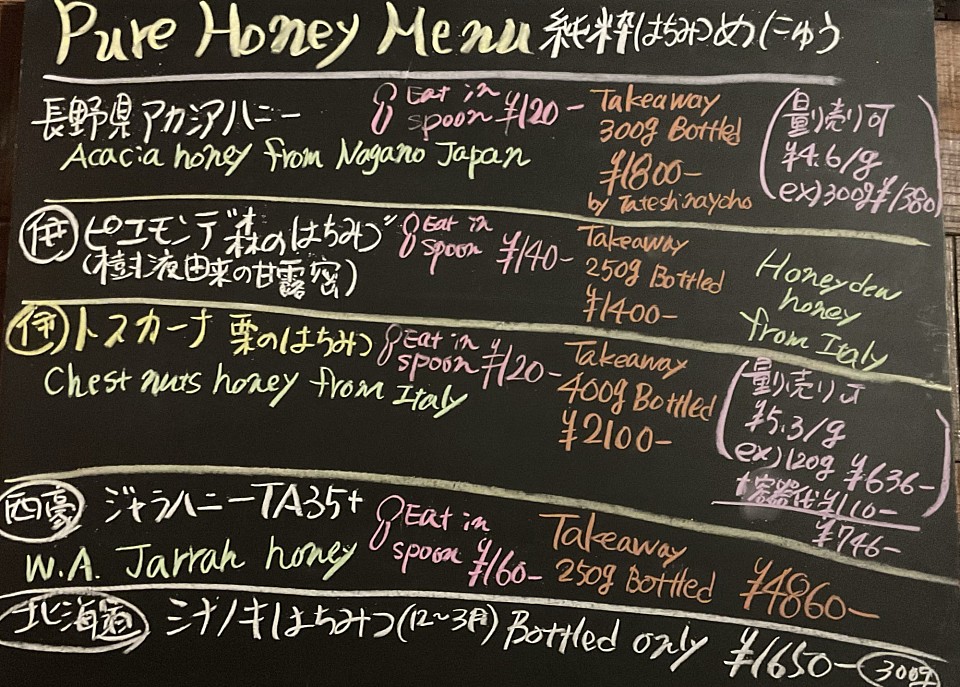 Pure Honey Menu 純粋はちみつめにゅう
長野県アカシアハニー
Acacia honey from Nagano Japan
Eat in
spoon ¥120-
Takeaway
300g Bottled
¥1800-
by Tateshinayoho
(量り売り可
¥4.6/g
ex)300g¥1380)
伊 ピエモンテ"森のはちみつ"
(樹液由来の甘露蜜)
Eat in
spoon ¥140-
Takeaway
250g Bottled
¥1400-
Honeydew
honey
from Italy
伊 トスカーナ 栗のはちみつ
Chestnuts honey from Italy
Eat in
spoon ¥120-
Takeaway
400g Bottled
¥2100-
(量り売り可
¥5.3/g
ex)120g ¥636-
+容器代¥110-
¥746-)
西豪 ジャラハニーTA35+
W.A. Jarrah honey
Eat in
spoon ¥160-
Takeaway
250g Bottled ¥4860-
北海道 シナノキはちみつ(12~3月) Bottled only ¥1650- 300g